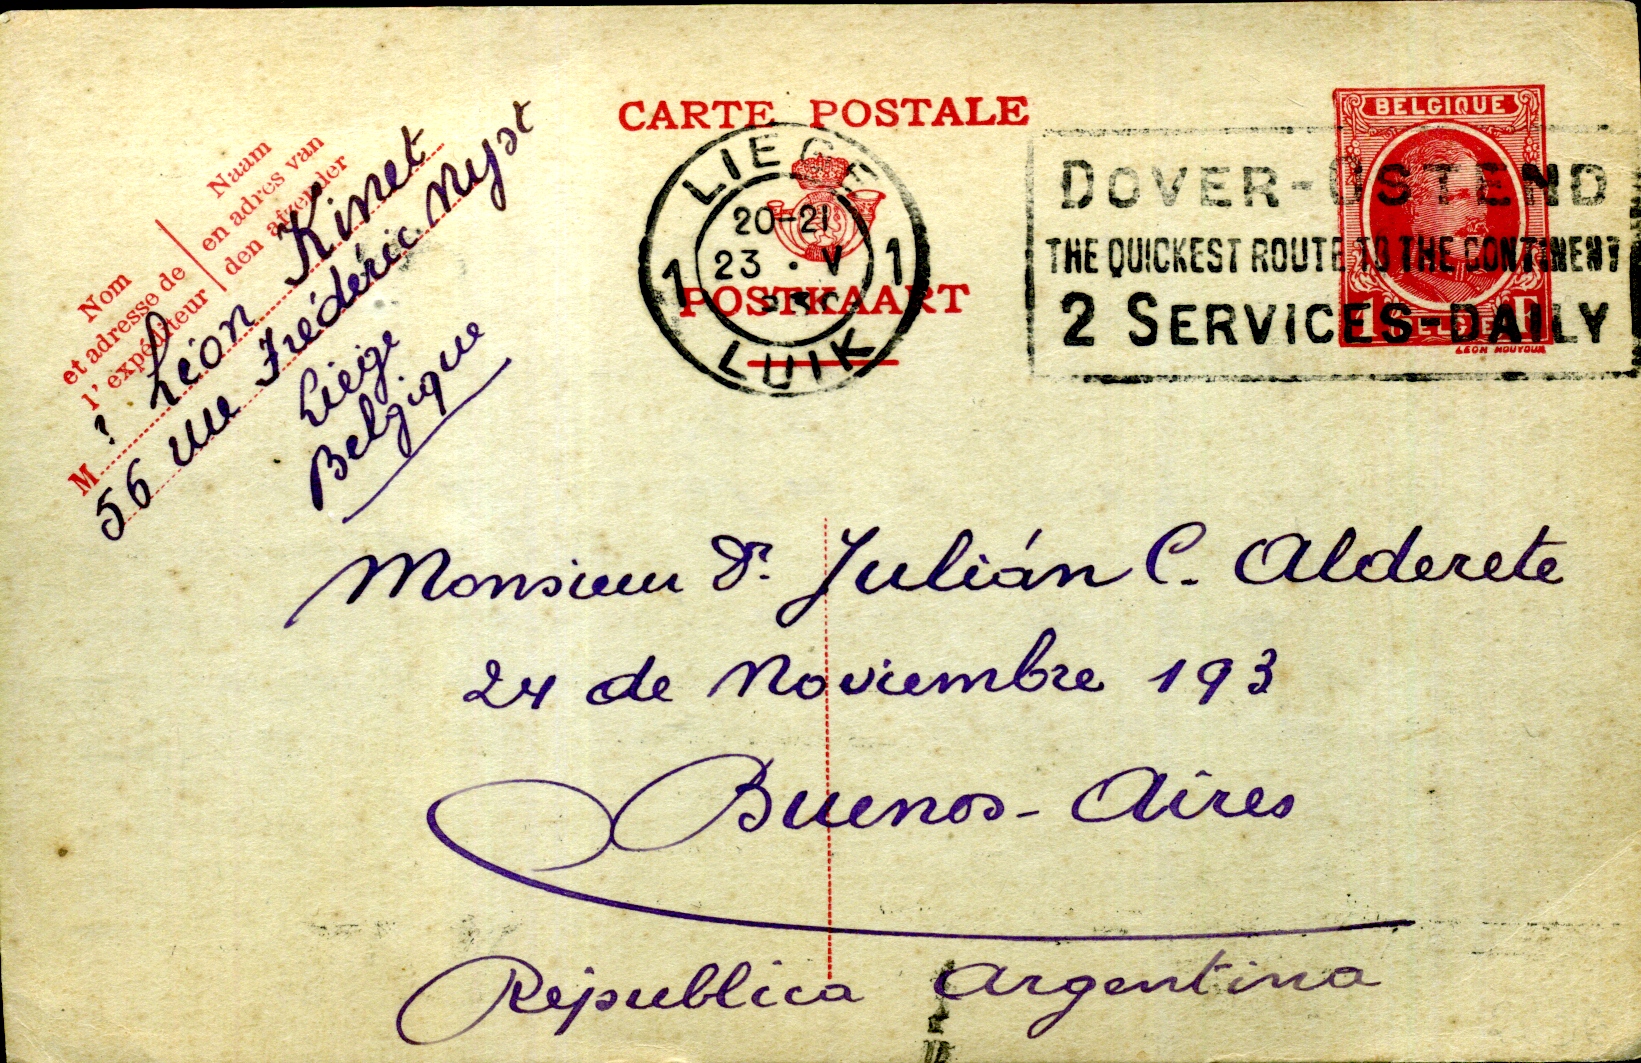 CARTE POSTALE
POSTKAART
Nom
et adresse de
l'expéditeur
Naam
en adres van
den afzender
M : Léon Kinet
56 rue Frédéric Nyst
Liége
Belgique
LIEGE
20-21
1 23 . V 1
LUIK
BELGIQUE
DOVER-OSTEND
THE QUICKEST ROUTE TO THE CONTINENT
2 SERVICES-DAILY
Monsieur Dr. Julián C. Alderete
24 de Noviembre 193
Buenos-Aires
Républica Argentina